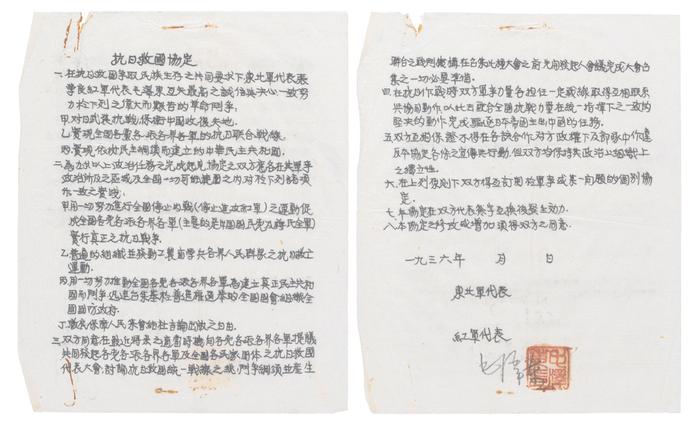 抗日救國協定
一.在抗日救國爭取民族生存之共同要求下.東北軍代表張
學良紅軍代表毛澤東五大最高之誠信與決心一致努
力於下列之偉大而艱苦的革命鬥爭.
甲.對日武裝抗戰,保衛中國收復失地.
乙.實現全國各黨各派各界各軍的抗日聯合戰線.
丙.實現依於民主綱領而建立的中華民主共和國.
二.為力求以上政治任務之完成起見,協定之雙方應各在其軍事
政治所及之區域及全國一切可能範圍之內,對於下列各項
作一致之實踐.
甲.用一切努力進行全國停止內戰(停止進攻紅軍)之運動促
成全國各黨各派各界各軍(主要的是中國國民黨及蔣氏全軍)
實行真正之抗日戰爭.
乙.普遍的組織並發動工農商學兵各界人民群眾之抗日救亡
運動.
丙.用一切努力推動全國各黨各派各界各軍為建立真正民主共和
國而鬥爭,迅速召集基於普選權選舉的全國國會組織全
國國防政府.
丁.徹底保障人民集會結社言論出版之自由.
三.雙方同意在最近將來之適當時機向各黨各派各界各軍提議
共同發起各黨各派各界各軍及全國各民眾團体之抗日救國
代表大會,討論抗日救國統一戰線之組織,鬥爭綱領並產生
聯合之機構.在召集此種大會之前先開發起人會議完成大會召
集之一切必要準備.
四.在抗日作戰時雙方軍事力量各担任一定戰線取得互相联系
共協同動作,以此友合全國抗戰力量在統一指揮下之一致的
堅決的動作完成驅逐日本帝國主義出中國的任務.
五.雙方互相保證不得在各執合作對方政權下及部隊中作違
反本協定各條之宣傳與行動,但雙方均保持其政治上組織上
之獨立性.
六.在上列原則下雙方得互訂關於軍事或某一問題的個別協
定.
七.本協定在雙方代表簽字互換後發生効力.
八.本協定之修改或增加須得雙方之同意.
一九三六年 月 日
東北軍代表
紅軍代表
毛澤東